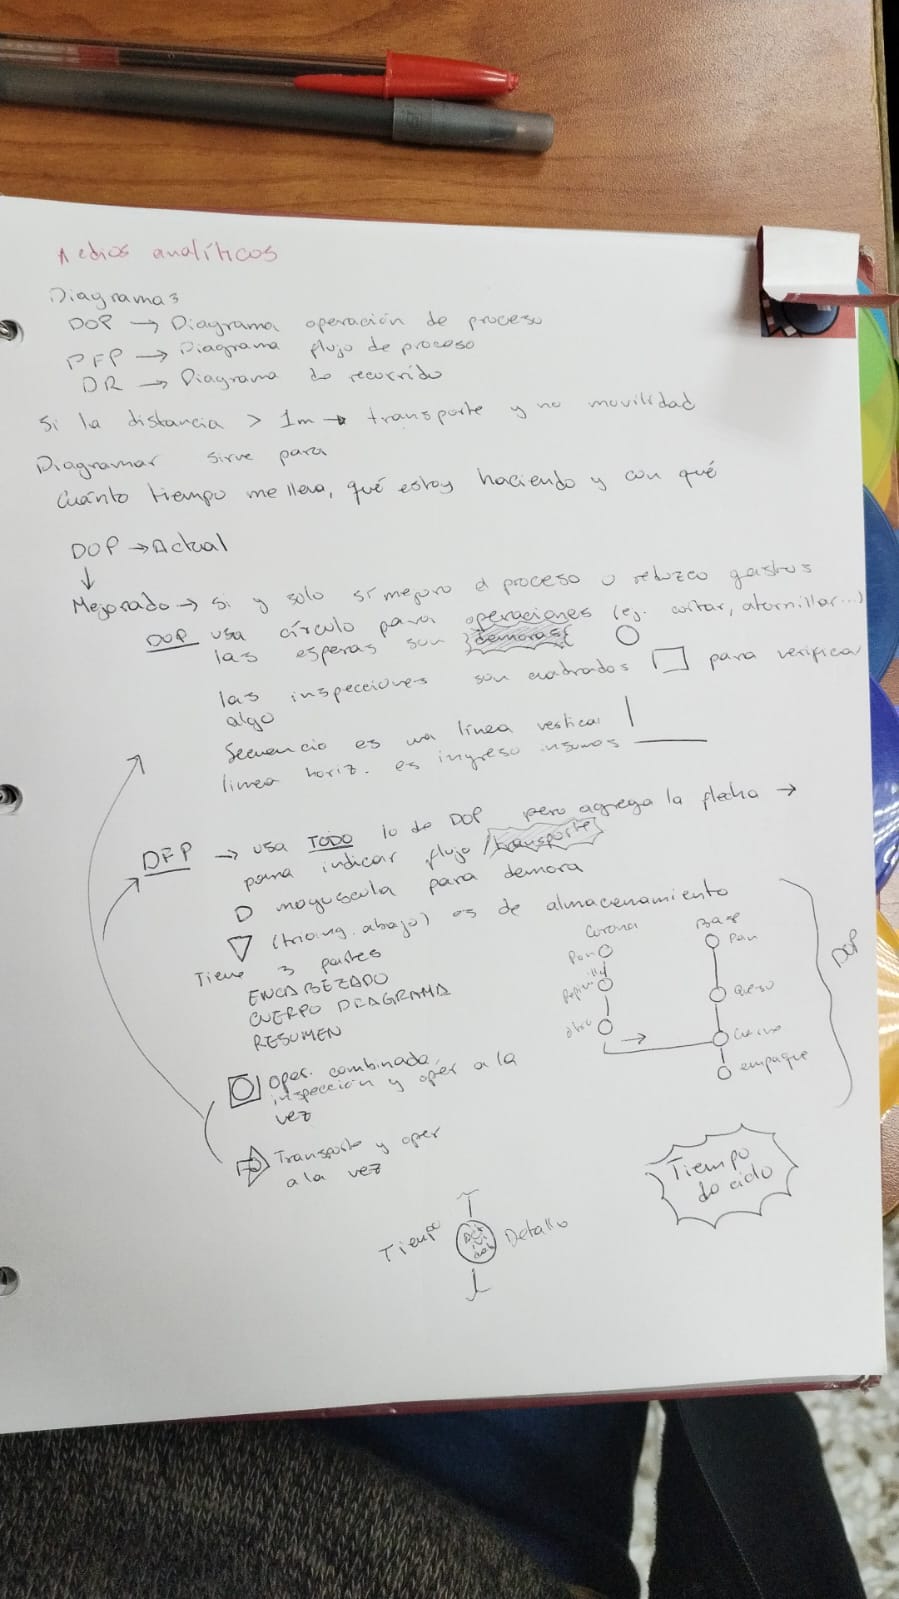 Medios analíticos
Diagramas
DOP → Diagrama operación de proceso
PFP → Diagrama flujo de proceso
DR → Diagrama de recorrido
Si la distancia > 1m → transporte y no movilidad
Diagramar sirve para
Cuánto tiempo me lleva, qué estoy haciendo y con qué
DOP → Actual
↓
Mejorado → si y solo si mejoro el proceso o reduzco gastos
DOP usa círculo para operaciones (ej. cortar, atornillar...)
las esperas son demoras ○
las inspecciones son cuadrados □ para verificar
algo
Secuencia es una línea vertical |
linea horiz. es ingreso insumos —
DFP → usa TODO lo de DOP pero agrega la flecha →
para indicar flujo/transporte
D mayuscula para demora
▽ (triang. abajo) es de almacenamiento
Tiene 3 partes
ENCABEZADO
CUERPO DIAGRAMA
RESUMEN
Corona
Pan
Pepinillo
Base
Pan
Queso
Carne
empaque
DOP
Oper. combinada,
inspección y oper a la
vez
Transporte y oper
a la vez
Tiempo
de ciclo
Tiempo
Actividad
Detalle